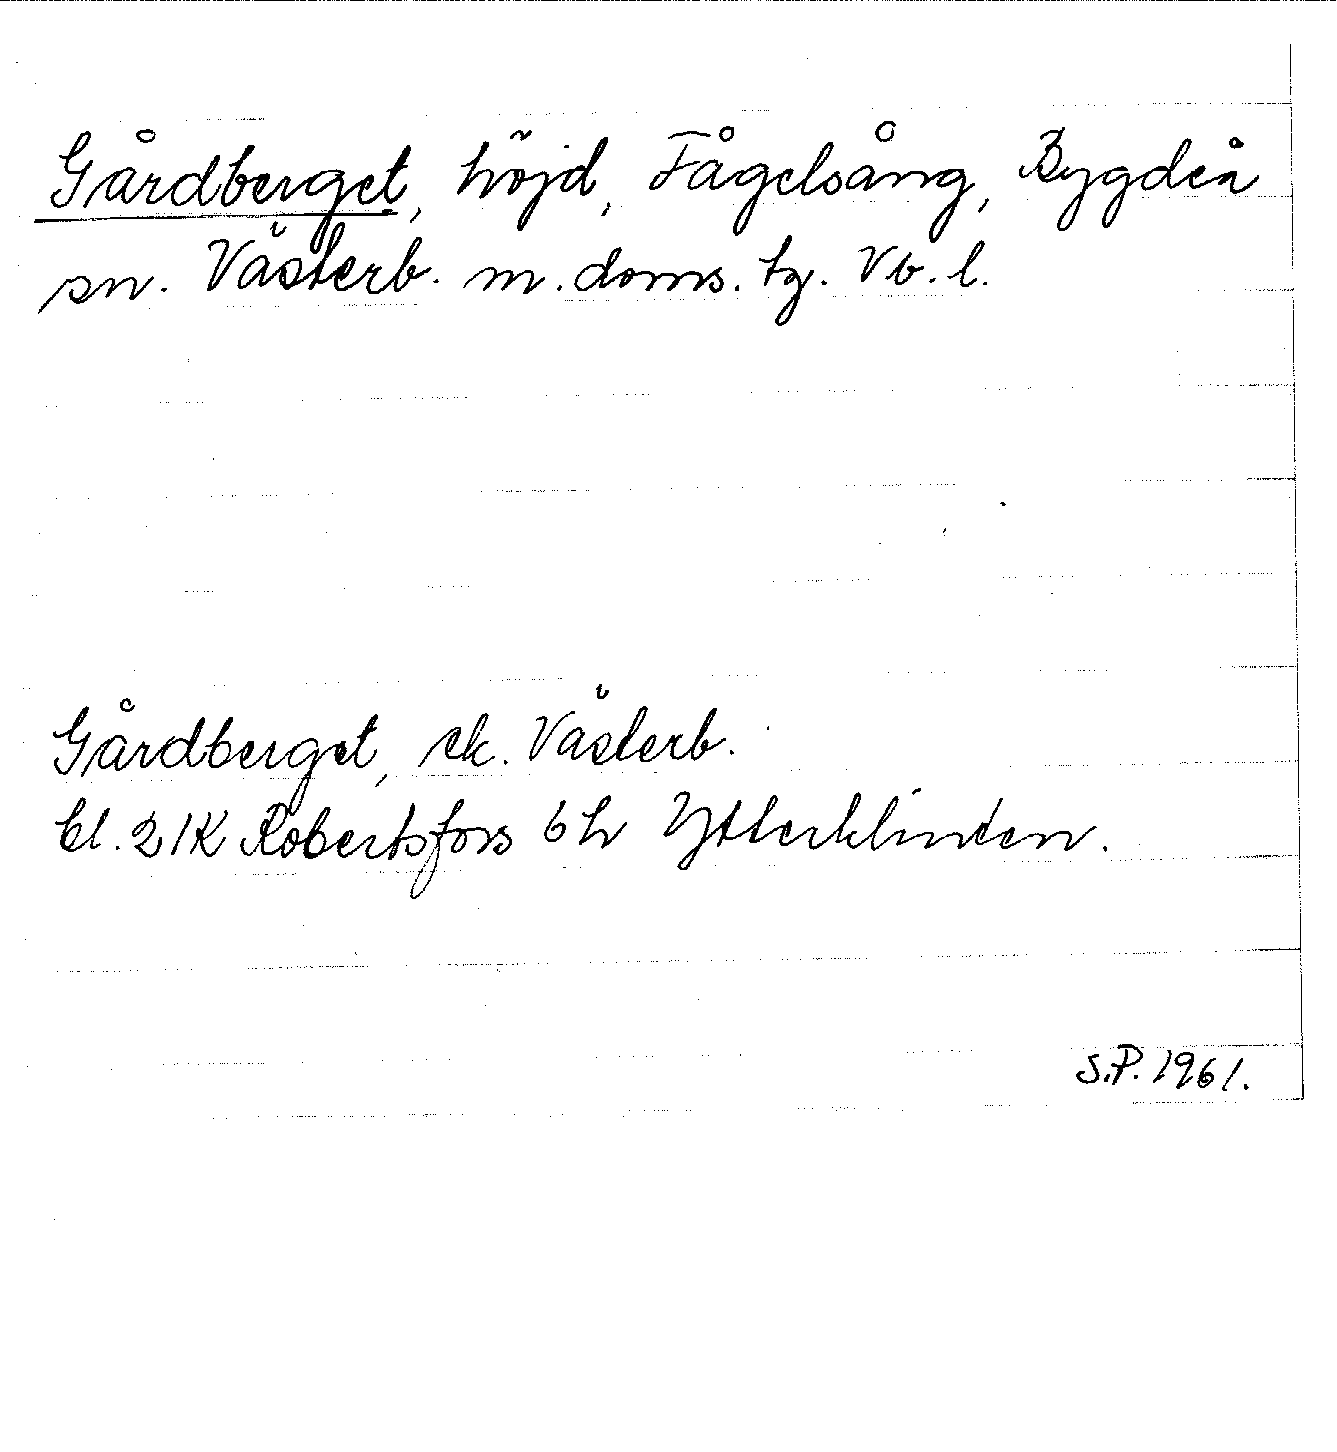 Gårdberget, höjd, Fågelsång, Bygdeå
sn. Västerb. m. doms. tg. Vb. l.
Gårdberget, ek. Västerb.
bl. 21K Robertsfors 6h Ytterklinten.
S.P. 1961.